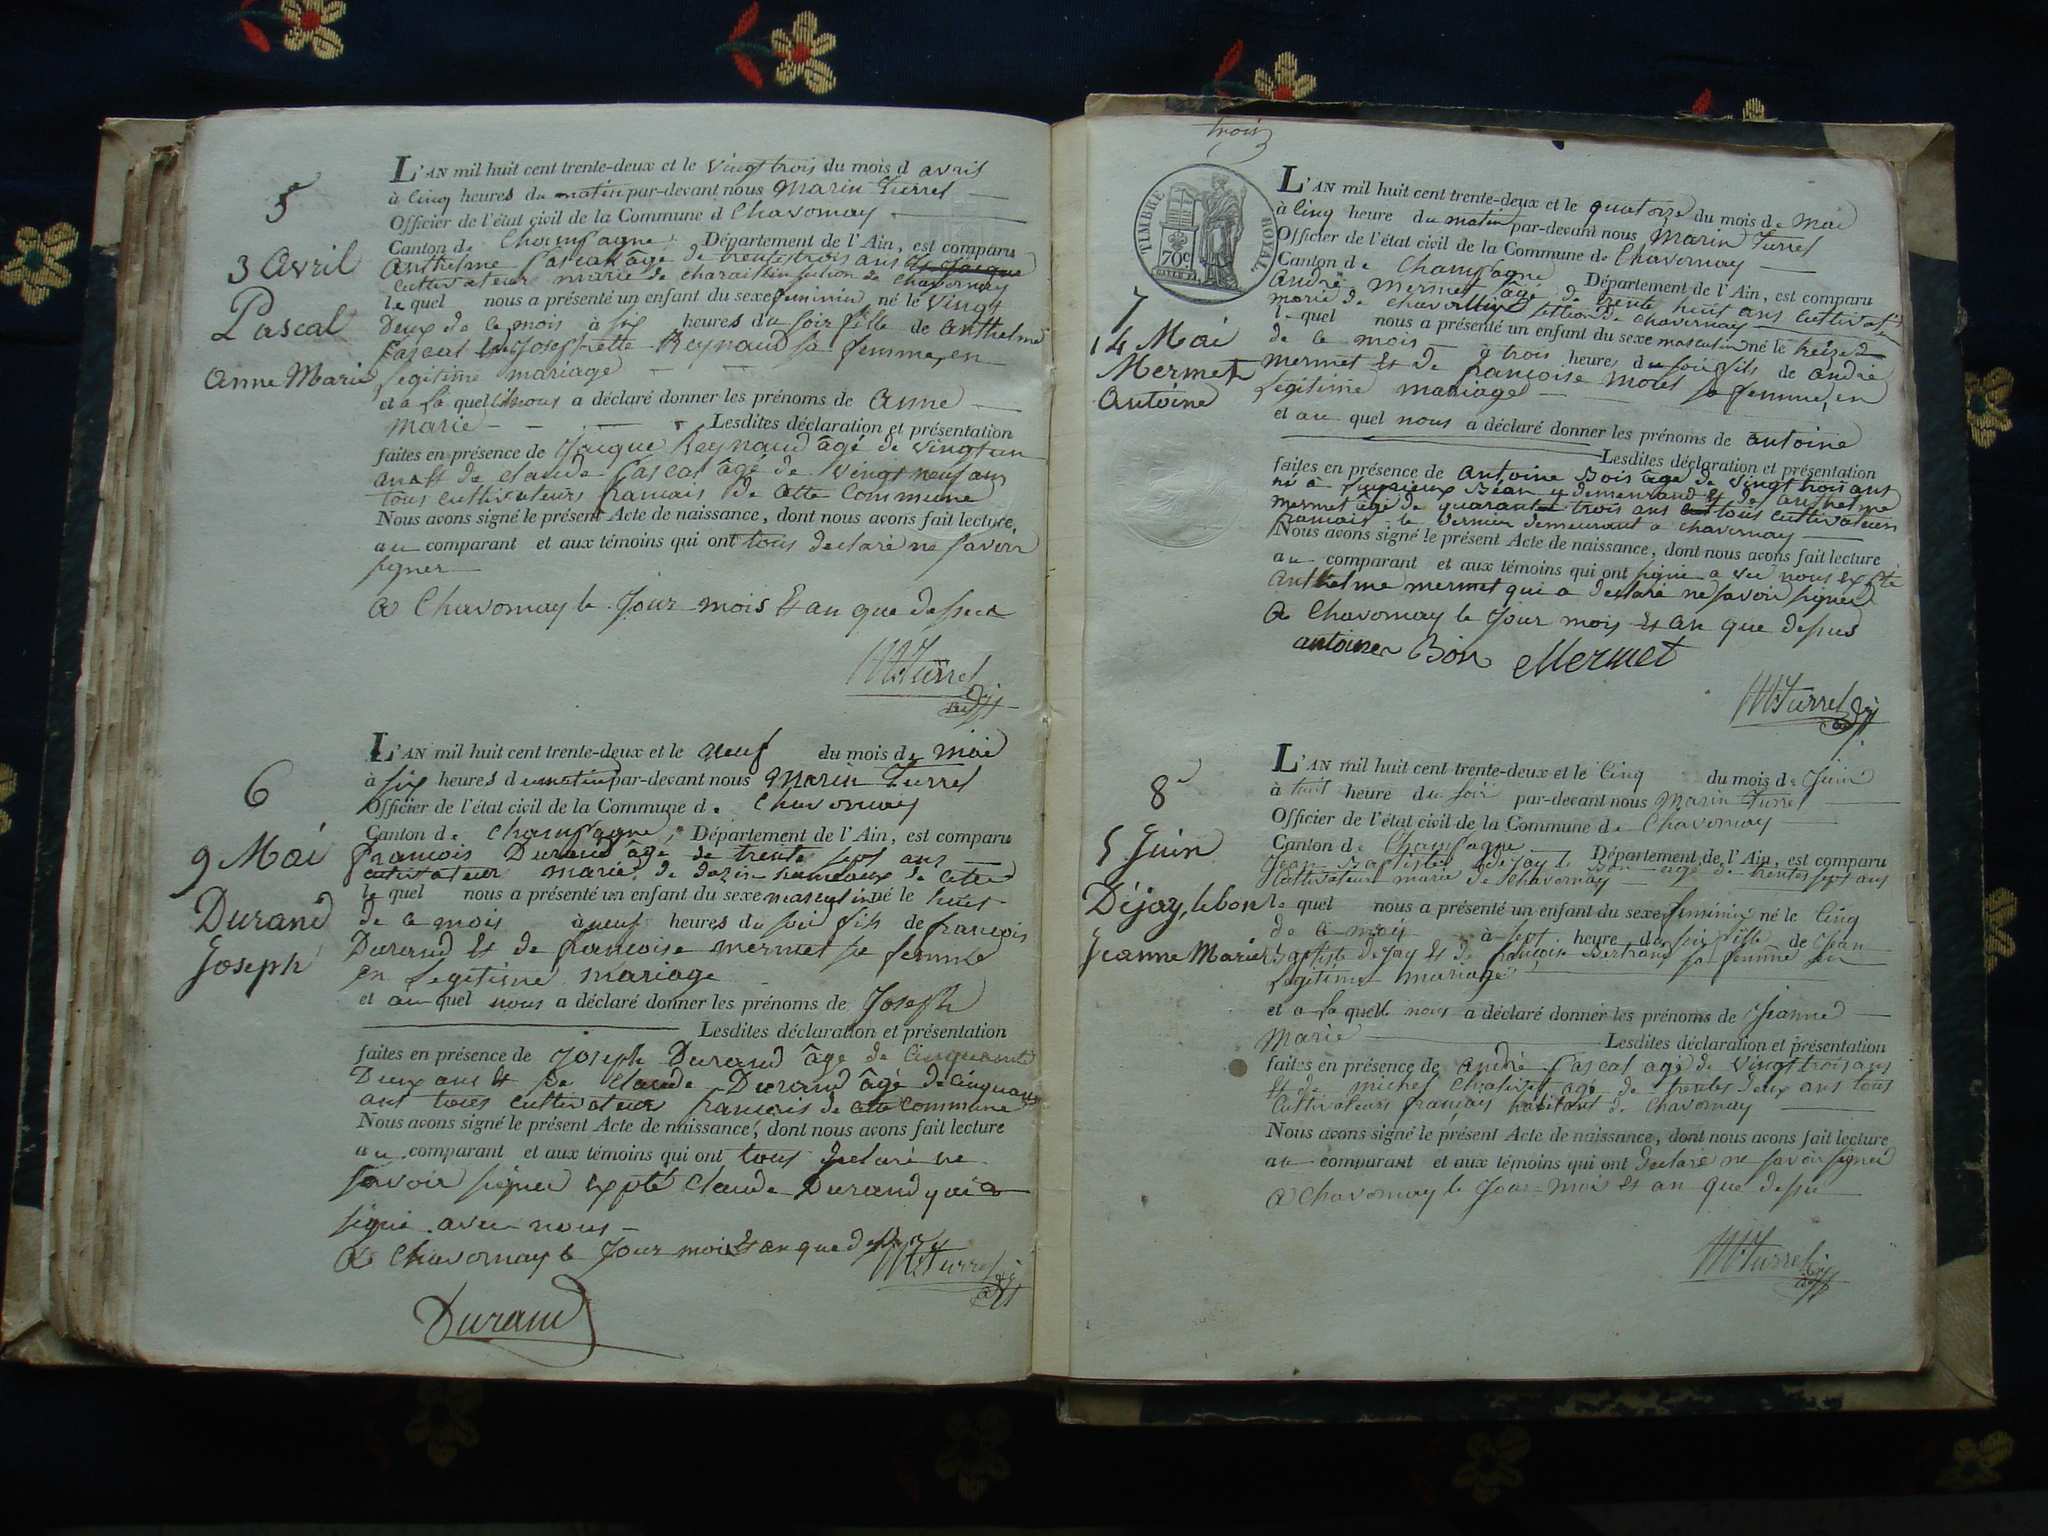 5
3 avril
Pascal
Anne Marie
L'AN mil huit cent trente-deux et le vingt trois du mois d avril
à cinq heures du matin par-devant nous Marin Turrel
Officier de l'état civil de la Commune d Chavornay
Canton de Champagne, Département de l'Ain, est comparu
Anthelme Pascal âgé de trente trois ans
cultivateur marié de section de Chavornay
le quel nous a présenté un enfant du sexe feminin, né le vingt
Deux de ce mois à six heures du soir fille de anthelme
Pascal et Josephette Reynaud sa femme, en
legitime mariage
et a la quelle nous a déclaré donner les prénoms de anne
marie Lesdites déclaration et présentation
faites en présence de Jacque Reynaud âgé de vingt un
ans et de claude Pascal âgé de vingt neuf ans
tous cultivateurs francais de cette Commune
Nous avons signé le présent Acte de naissance, dont nous avons fait lecture
au comparant et aux témoins qui ont tous declaré ne savoir
signer
a Chavornay le Jour mois et an que dessus
M. Turrel
6
9 Mai
Durand
Joseph
L'AN mil huit cent trente-deux et le neuf du mois de mai
à six heures du matin par-devant nous Marin Turrel
Officier de l'état civil de la Commune de Chavornay
Canton de Champagne, Département de l'Ain, est comparu
francois Durand âgé de trente sept ans
cultivateur marié de hameaux de cette
le quel nous a présenté un enfant du sexe masculin né le huit
de ce mois à neuf heures du soir fils de francois
Durand et de francoise mermet sa femme
en legitime mariage
et au quel nous a déclaré donner les prénoms de Joseph
Lesdites déclaration et présentation
faites en présence de Joseph Durand âgé de cinquante
Deux ans et de claude Durand âgé de cinquante
ans tous cultivateur francais de cette commune
Nous avons signé le présent Acte de naissance, dont nous avons fait lecture
au comparant et aux témoins qui ont tous declaré ne
savoir signer expté claude Durand qui a
signé avec nous
a Chavornay le Jour mois et an que dessus
M. Turrel
Durand
trois
TIMBRE ROYAL
70c
7
14 Mai
Mermet
Antoine
L'AN mil huit cent trente-deux et le quatorze du mois de Mai
à cinq heure du matin par-devant nous Marin Turrel
Officier de l'état civil de la Commune de Chavornay
Canton de Champagne Département de l'Ain, est comparu
andré mermet âgé de trente huit ans cultivateur
marié de section de chavornay
le quel nous a présenté un enfant du sexe masculin né le treize
de ce mois à trois heure du soir fils de andré
mermet et de francoise sa femme, en
legitime mariage
et au quel nous a déclaré donner les prénoms de antoine
Lesdites déclaration et présentation
faites en présence de antoine Bois âgé de vingt trois ans
né à y demeurand et de anthelme
mermet âgé de quarante trois ans tous cultivateurs
francais le dernier demeurant a chavornay
Nous avons signé le présent Acte de naissance, dont nous avons fait lecture
au comparant et aux témoins qui ont signé avec nous expté
anthelme mermet qui a declaré ne savoir signer
a Chavornay le Jour mois et an que dessus
antoine Bon Mermet
M. Turrel
8
5 Juin
Déjay, lebon
Jeanne Marie
L'AN mil huit cent trente-deux et le cinq du mois de Juin
à huit heure du soir par-devant nous Marin Turrel
Officier de l'état civil de la Commune de Chavornay
Canton de Champagne Département de l'Ain, est comparu
Jean Baptiste dejay le Bon âgé de trente sept ans
cultivateur marié de Chavornay
le quel nous a présenté un enfant du sexe feminin né le cinq
de ce mois à sept heure du soir fille de Jean
Baptiste dejay et de francoise Bertrand sa femme en
legitime mariage
et a la quelle nous a déclaré donner les prénoms de Jeanne
Marie Lesdites déclaration et présentation
faites en présence de andré Pascal agé de vingt trois ans
et de michel agé de trente deux ans tous
cultivateurs français habitant de Chavornay
Nous avons signé le présent Acte de naissance, dont nous avons fait lecture
au comparant et aux témoins qui ont declaré ne savoir signer
a Chavornay le Jour mois et an que dessus
M. Turrel